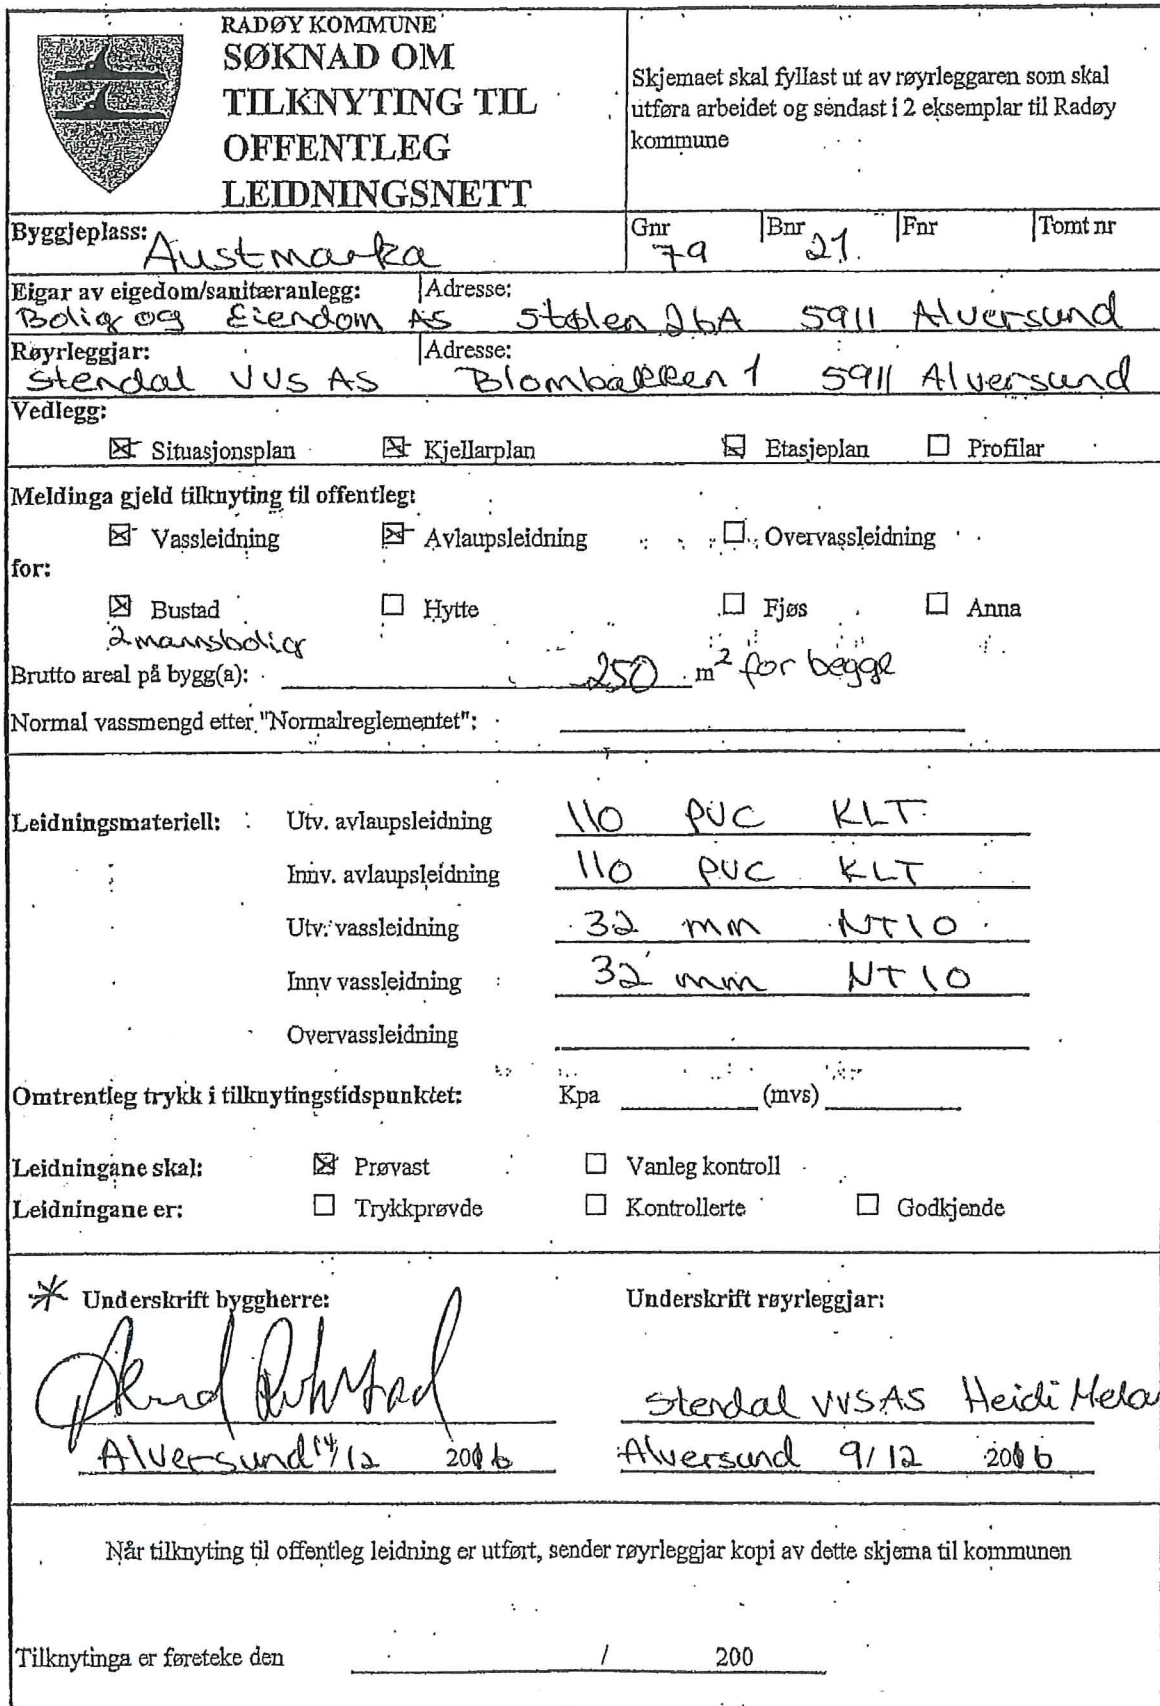 RADØY KOMMUNE
SØKNAD OM
TILKNYTING TIL
OFFENTLEG
LEIDNINGSNETT
Skjemaet skal fyllast ut av røyrleggaren som skal
utføra arbeidet og sendast i 2 eksemplar til Radøy
kommune
Byggjeplass: Austmarka
Gnr 79 Bnr 21. Fnr Tomt nr
Eigar av eigedom/sanitæranlegg: Adresse:
Bolig og Eiendom AS Stølen 26A 5911 Alversund
Røyrleggjar: Adresse:
Stendal VVS AS Blombakken 1 5911 Alversund
Vedlegg:
☒ Situasjonsplan ☒ Kjellarplan ☒ Etasjeplan ☐ Profilar
Meldinga gjeld tilknyting til offentleg:
☒ Vassleidning ☒ Avlaupsleidning ☐ Overvassleidning
for:
☒ Bustad ☐ Hytte ☐ Fjøs ☐ Anna
2 mannsbolig
Brutto areal på bygg(a): 250 m² for begge
Normal vassmengd etter "Normalreglementet":
Leidningsmateriell: Utv. avlaupsleidning 110 PVC KLT
Innv. avlaupsleidning 110 PVC KLT
Utv. vassleidning 32 mm NT10
Innv vassleidning 32 mm NT10
Overvassleidning
Omtrentleg trykk i tilknytingstidspunktet: Kpa (mvs)
Leidningane skal: ☒ Prøvast ☐ Vanleg kontroll
Leidningane er: ☐ Trykkprøvde ☐ Kontrollerte ☐ Godkjende
* Underskrift byggherre: Underskrift røyrleggjar:
Stendal VVS AS Heidi
Alversund 14/12 2016 Alversund 9/12 2016
Når tilknyting til offentleg leidning er utført, sender røyrleggjar kopi av dette skjema til kommunen
Tilknytinga er føreteke den / 200